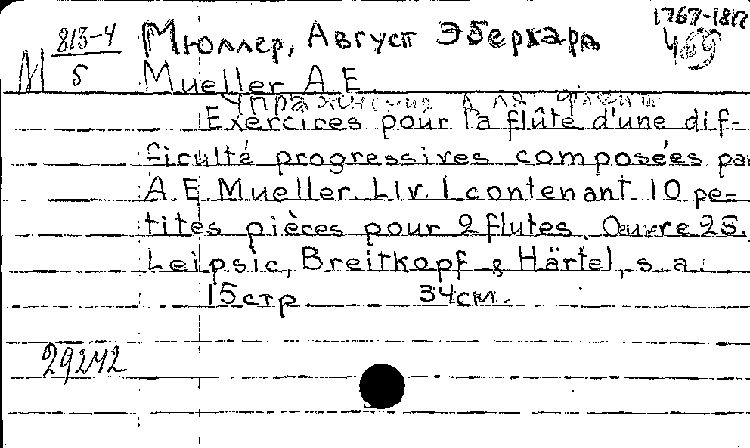 1767-1817
М 813-4/5 Мюллер, Август Эберхард
Mueller A E
Упражнения для флейты
Exercices pour la flûte d'une dif-
ficulté progressives composées par
A. E. Mueller. Liv. 1 contenant 10 pe=
tites pièces pour 2 flutes. Oeuvre 25.
Leipsic, Breitkopf & Härtel, s. a.
15 стр 34 см.
29242